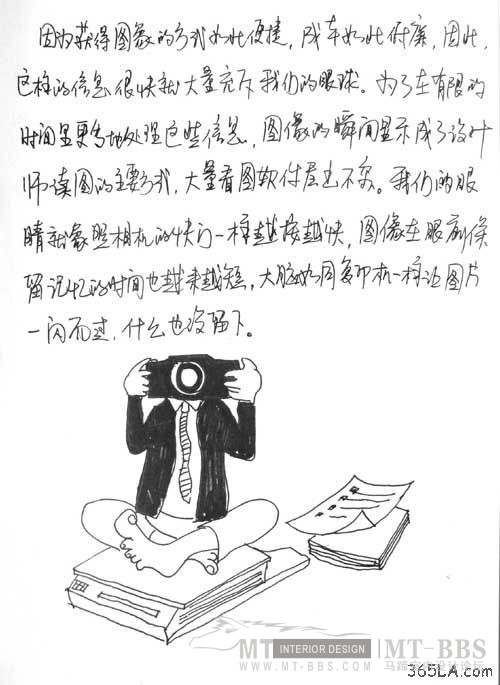 因为获得图象的方式如此便捷，成本如此低廉，因此，
这样的信息很快就大量充斥我们的眼球。为了在有限的
时间里更多地处理这些信息，图像的瞬间显示成了设计
师读图的主要方式，大量看图软件层出不穷。我们的眼
睛就象照相机的快门一样越按越快，图像在眼前停
留记忆的时间也越来越短，大脑如同复印机一样让图片
一闪而过，什么也没留下。
MT INTERIOR DESIGN MT-BBS
WWW.MT-BBS.COM 马蹄室内设计论坛
365LA.com